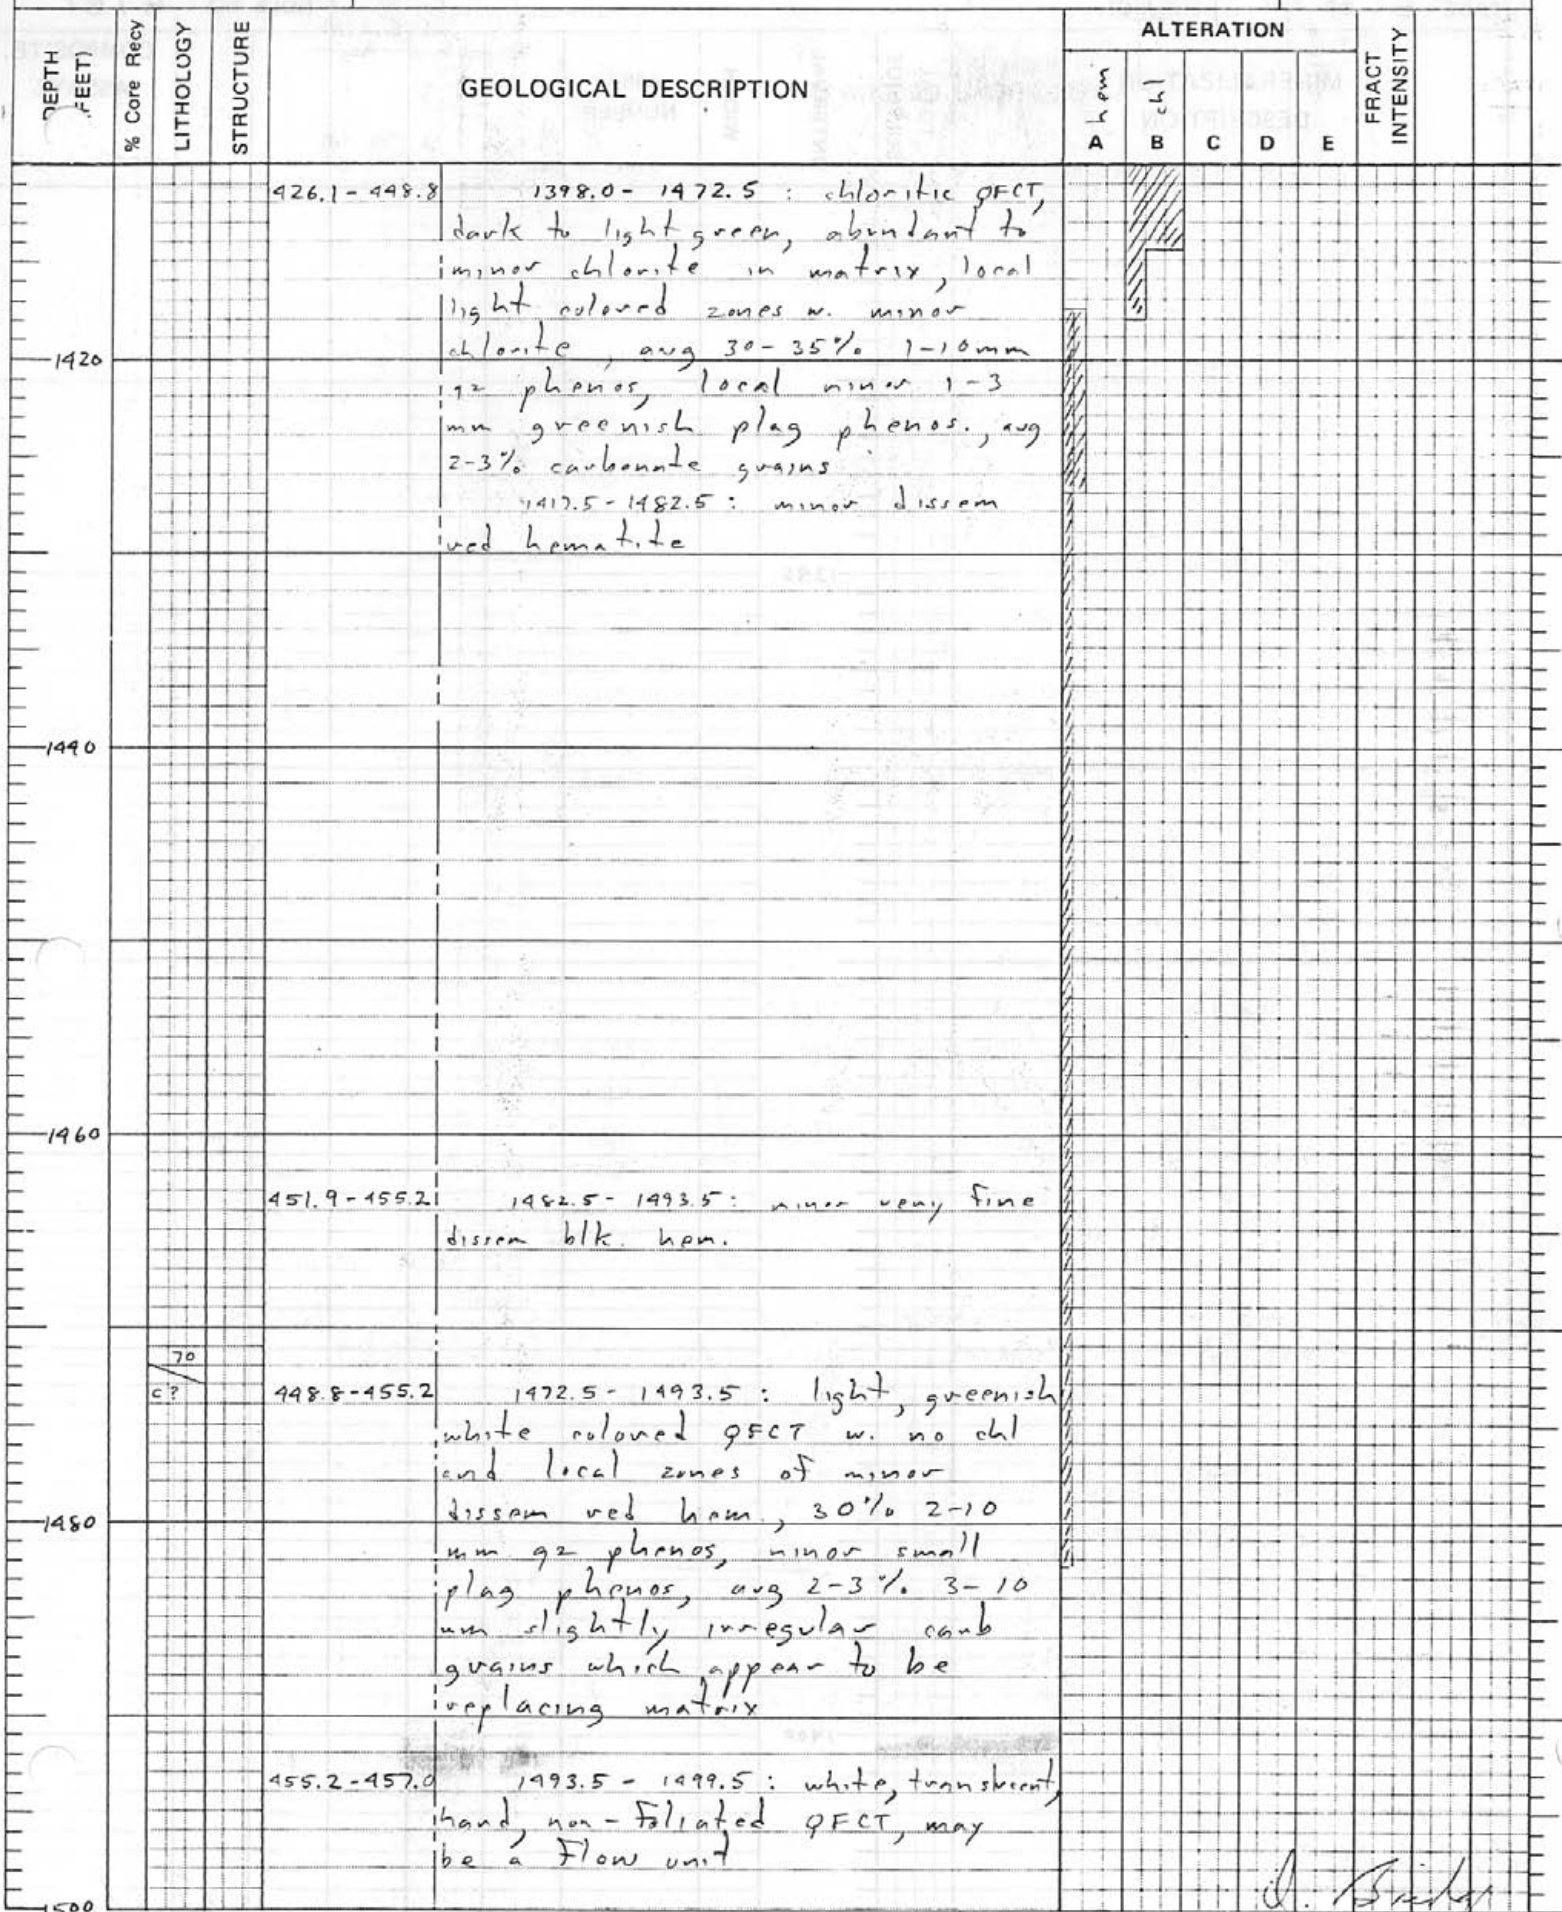 DEPTH
(FEET)
% Core Recy
LITHOLOGY
STRUCTURE
GEOLOGICAL DESCRIPTION
ALTERATION
hem
chl
A B C D E
FRACT
INTENSITY
426.1-448.8 1398.0-1472.5 : chloritic QFCT,
dark to light green, abundant to
minor chlorite in matrix, local
light colored zones w. minor
1420 chlorite, avg 30-35% 1-10mm
qz phenos, local minor 1-3
mm greenish plag phenos., avg
2-3% carbonate grains
1417.5-1482.5: minor dissem
red hematite
1440
1460
451.9-455.2 1482.5-1493.5: minor very fine
dissem blk. hem.
70
c? 448.8-455.2 1472.5-1493.5 : light, greenish
white colored QFCT w. no chl
and local zones of minor
1480 dissem red hem., 30% 2-10
mm qz phenos, minor small
plag phenos, avg 2-3% 3-10
mm slightly irregular carb
grains which appear to be
replacing matrix
455.2-457.0 1493.5-1499.5: white, translucent,
hard, non-foliated QFCT, may
be a flow unit
1500